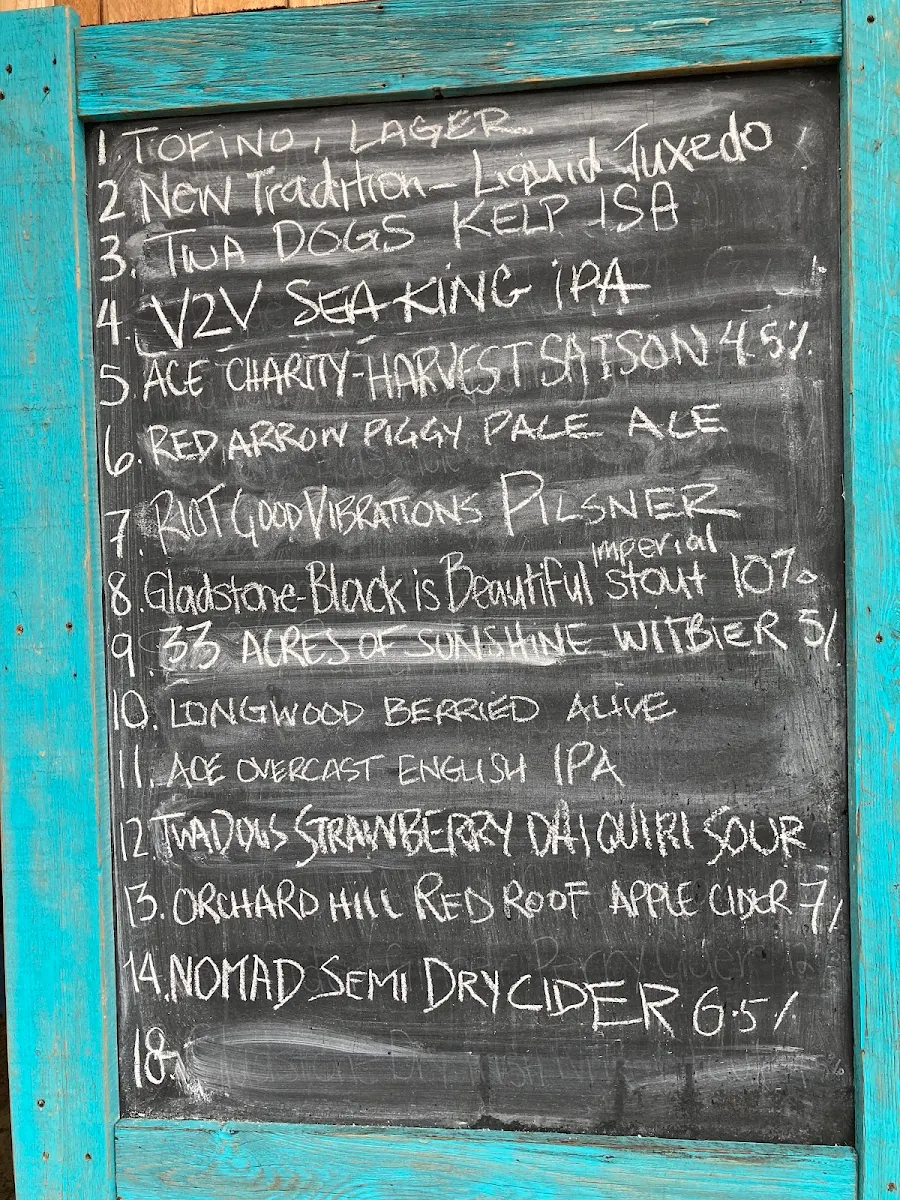 1. TOFINO, LAGER
2 New Tradition - Liquid Tuxedo
3. TWA DOGS KELP ISA
4. V2V SEA KING iPA
5 ACE CHARITY-HARVEST SAISON 4.5%
6. RED ARROW PIGGY PALE ALE
7. RIOT GOOD VIBRATIONS PILSNER
8. Gladstone-Black is Beautiful imperial stout 10%
9. 33 ACRES OF SUNSHINE WITBIER 5%
10. LONGWOOD BERRIED ALIVE
11. ACE OVERCAST ENGLISH IPA
12. TWA DOGS STRAWBERRY DAIQUIRI SOUR
13. ORCHARD HILL RED ROOF APPLE CIDER 7%
14. NOMAD SEMI DRY CIDER 6.5%
18.